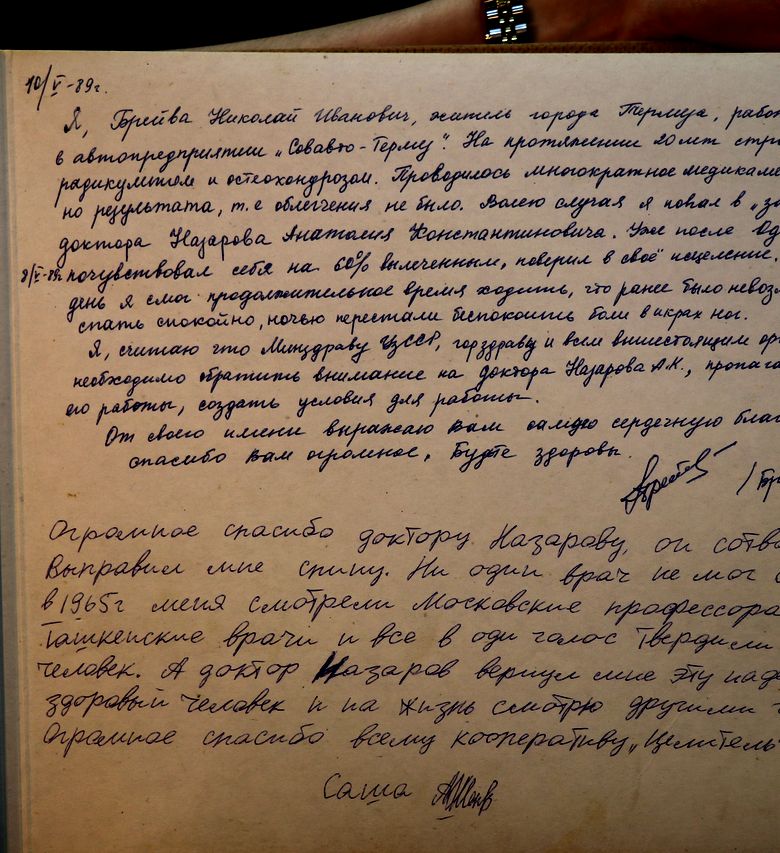 10/V-89г.
Я, Брейва Николай Иванович, житель города Термуза, рабо
в автопредприятии „Совавто-Термуз". На протяжении 20 лет стр
радикулитом и остеохондрозом. Проводилось многократное медикаме
но результата, т.е облегчения не было. Волею случая я попал в „
доктора Назарова Анатолия Константиновича. Уже после од
8/V-89г почувствовал себя на 60% вылеченным, поверил в своё исцеление.
день я смог продолжительное время ходить, что ранее было невоз
спать спокойно, ночью перестали беспокоить боли в икрах ног.
Я, считаю что Минздраву УзССР, горздраву и всем вышестоящим ор
необходимо обратить внимание на доктора Назарова А.К., пропага
его работы, создать условия для работы.
От своего имени выражаю вам самую сердечную благ
спасибо вам огромное, Будте здоровы.
/ Бр
Огромное спасибо доктору Назараву, он сотв
Выправил мне спину. Ни один врач не мог
в 1965г меня смотрели Московские профессора
Ташкенские врачи и все в оди голос Твердили
человек. А доктор Назаров вернул мне эту над
здоровый человек и на жизнь смотрю другими
Огромное спасибо всему кооперативу „Целитель"
Саша